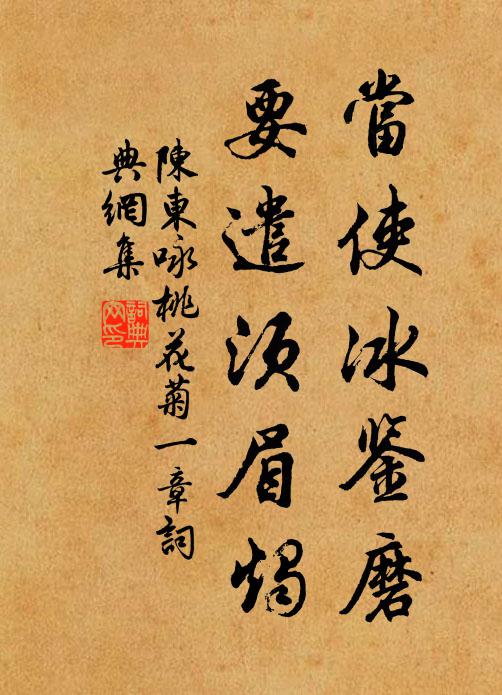 當使冰鉴磨
要遣须眉燭
陳東咏桃花菊一章詞
典網集
詞典
网印